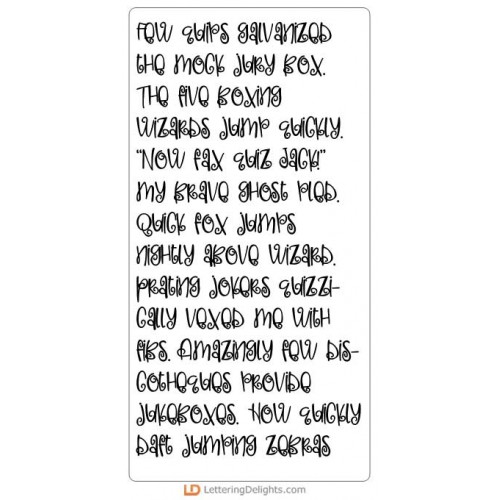 Few quips galvanized
the mock jury box.
The five boxing
wizards jump quickly.
"Now fax quiz Jack!"
my brave ghost pled.
Quick fox jumps
nightly above wizard.
Prating jokers quizzi-
cally vexed me with
fibs. Amazingly few dis-
cotheques provide
jukeboxes. How quickly
daft jumping zebras
LD LetteringDelights.com